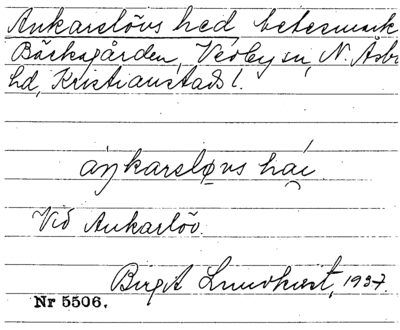 Ankarslövs hed betesmark
Bäcksgården, Vedby sn, N. Åsbo
hd, Kristianstads l.
áŋkarsløvs hái
Vid Ankarlöv.
Birgit Lundkvist, 1937.
Nr 5506.